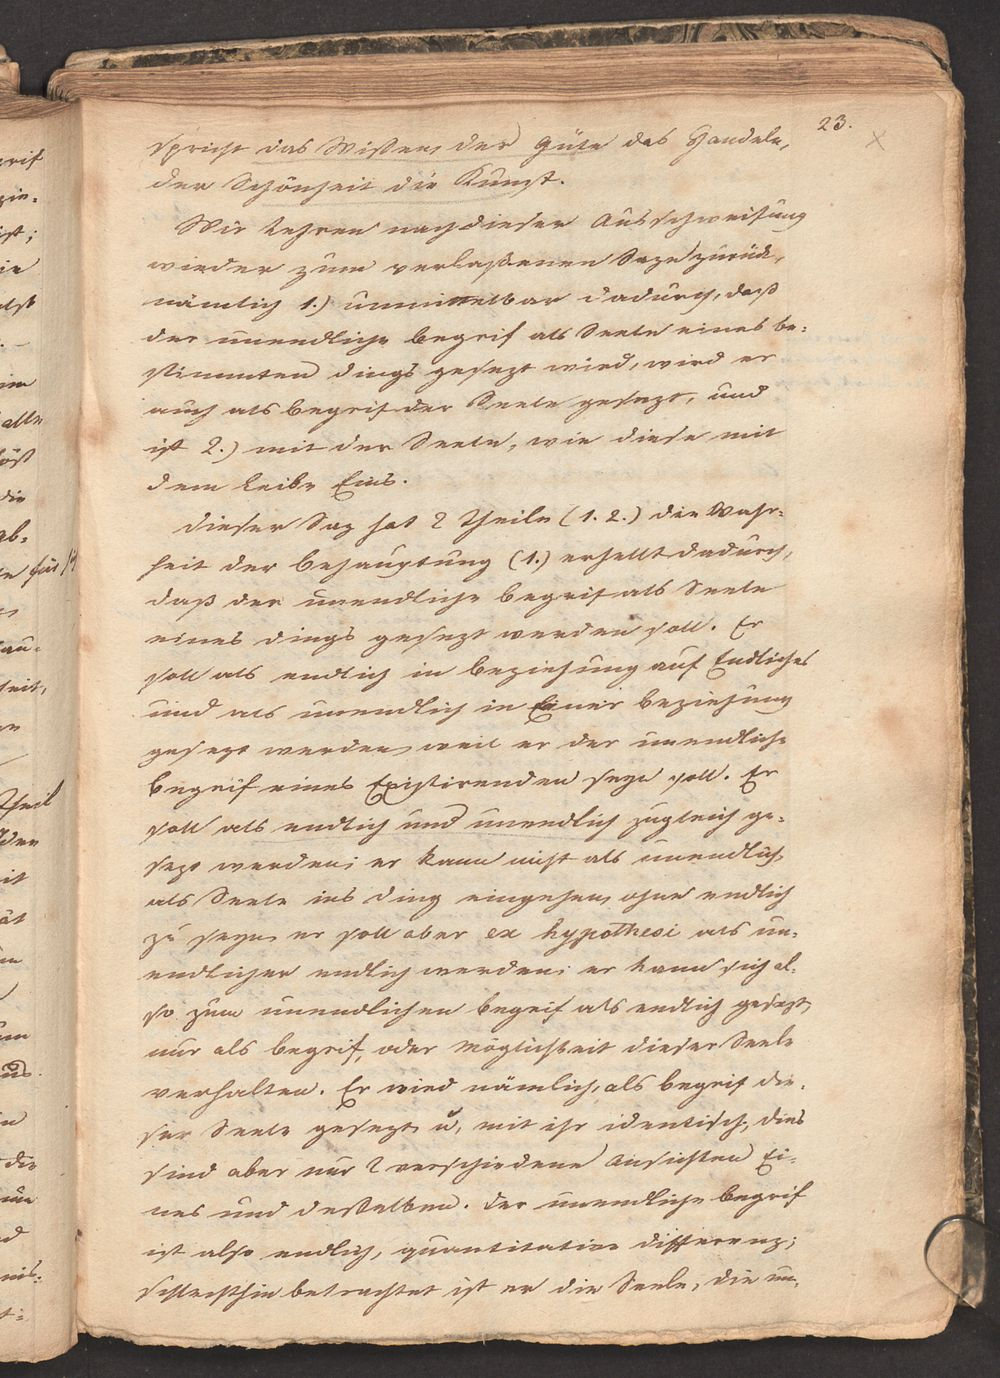 23.
spricht das Wißen, der Güte das Handeln,
der Schönheit die Kunst.
Wir kehren nach dieser Ausschweifung
wieder zum verlaßenen Saze zurück,
nämlich 1.) unmittelbar dadurch, daß
der unendliche Begrif als Seele eines be-
stimmten Dings gesezt wird, wird er
auch als Begrif der Seele gesezt, und
ist 2.) mit der Seele, wie diese mit
dem Leibe Eins.
Dieser Saz hat 2 Theile (1. 2.) die Wahr-
heit der Behauptung (1.) erhellt dadurch,
daß der unendliche Begrif als Seele
eines Dings gesezt werden soll. Er
soll als endlich in Beziehung auf Endliches
und als unendlich in Einer Beziehung
gesezt werden, weil er der unendliche
Begrif eines Existirenden seyn soll. Er
soll als endlich und unendlich zugleich ge-
sezt werden; er kann nicht als unendlich,
als Seele ins Ding eingehen, ohne endlich
zu seyn, er soll aber ex hypothesi als un-
endlicher endlich werden; er kann sich al-
so zum unendlichen Begrif als endlich gesezt,
nur als Begrif, oder Möglichkeit dieser Seele
verhalten. Er wird nämlich, als Begrif die-
ser Seele gesezt, u, mit ihr identisch, dies
sind aber nur 2 verschiedene Ansichten Ei-
nes und deßelben. Der unendliche Begrif
ist also endlich, quantitative Differenz;
schlechthin betrachtet ist er die Seele, die un-